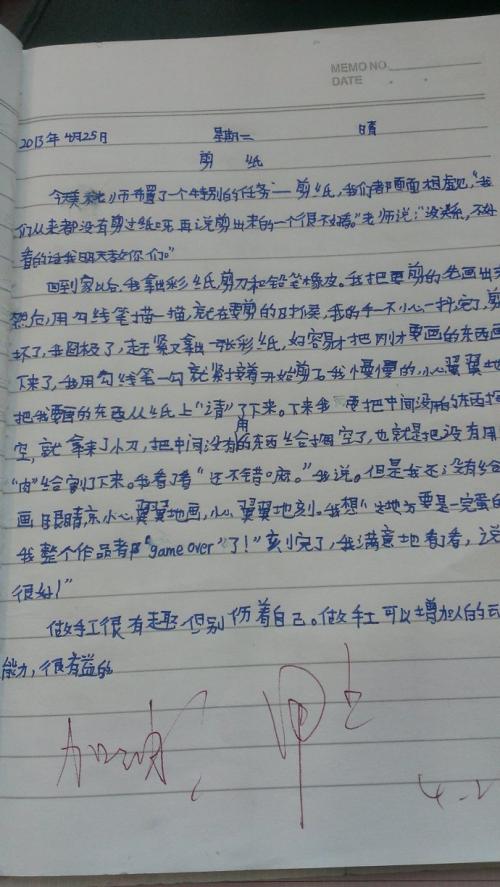 MEMO NO.
DATE
2013年4月25日 星期二 晴
剪 纸
今天老师布置了一个特别的任务——剪纸,我们都面面相觑,"我
们从来都没有剪过纸呀再说剪出来的一个很不好看。"老师说:"没关系,不好
看的话我明天教你们。"
回到家以后,我拿出彩纸剪刀和铅笔橡皮。我把要剪的先画出来
然后,用勾线笔描一描,就在要剪的时候,我的手一不小心一抖,完了,剪
坏了,我困极了,赶紧又拿出一张彩纸,好容易才把刚才要画的东西画
下来了,我用勾线笔一勾就紧接着开始剪了。我慢慢的,小心翼翼地
把我要剪的东西从纸上"请"了下来。下来我要把中间没用的东西挖
空,就拿来了小刀,把中间没有用的东西给掏空了,也就是把没有用
"肉"给割了下来。我看了看"还不错嘛。"我说。但是我还没有给
画眼睛,小心翼翼地画,小心翼翼地刻。我想"这地方要是一完蛋
我整个作品都"game over"了!"刻完了,我满意地看了看,
很好!"
做手工很有趣,但别伤着自己。做手工可以增加人的
能力,很有益的
加油
甲上
4.2